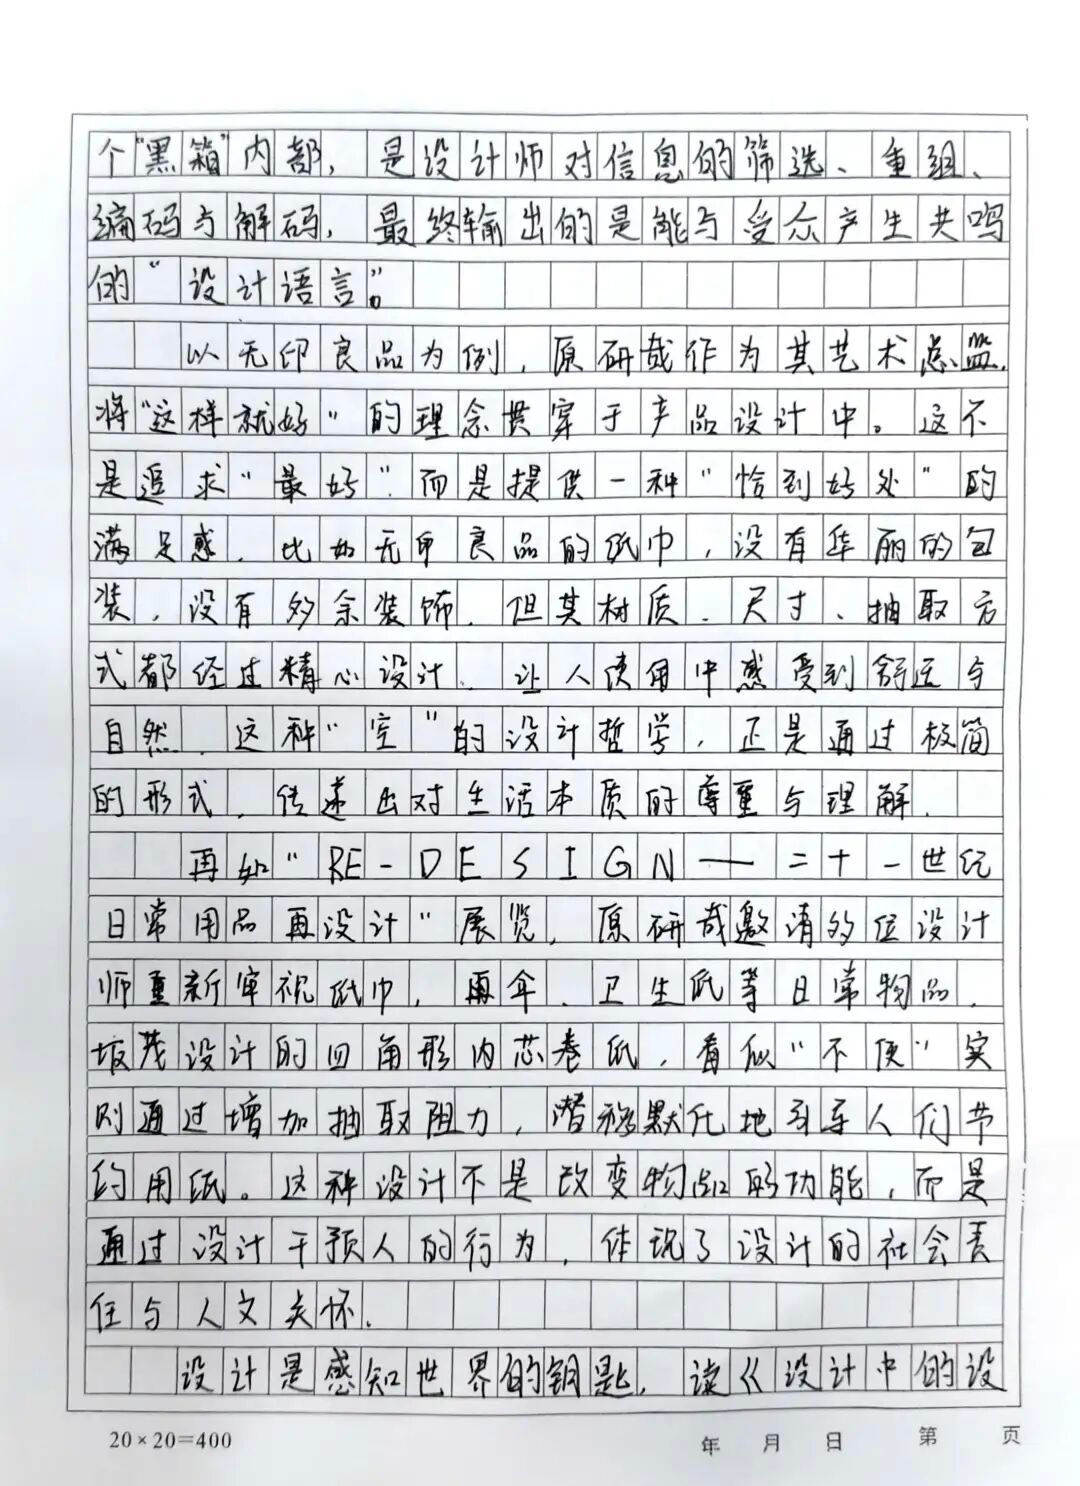 个“黑箱”内部，是设计师对信息的筛选、重组、
编码与解码，最终输出的是能与受众产生共鸣
的“设计语言”。
以无印良品为例，原研哉作为其艺术总监，
将“这样就好”的理念贯穿于产品设计中。这不
是追求“最好”而是提供一种“恰到好处”的
满足感．比如无印良品的纸巾，没有华丽的包
装，没有多余装饰．但其材质．尺寸、抽取方
式都经过精心设计．让人使用中感受到舒适与
自然．这种“空”的设计哲学，正是通过极简
的形式，传递出对生活本质的尊重与理解．
再如“RE-DESIGN——二十一世纪
日常用品再设计“展览，原研哉邀请多位设计
师重新审视纸巾，雨伞、卫生纸等日常物品．
坂茂设计的四角形内芯卷纸，看似“不便“实
则通过增加抽取阻力，潜移默化地引导人们节
约用纸。这种设计不是改变物品的功能，而是
通过设计干预人的行为，体现了设计的社会责
任与人文关怀．
设计是感知世界的钥匙，读《设计中的设
20×20=400
年 月 日 第 页